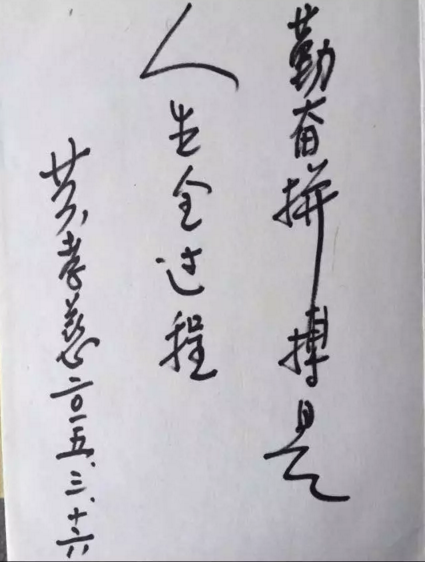 勤奋拼搏是
人生全过程
黄孝慈二〇一五.三.十六